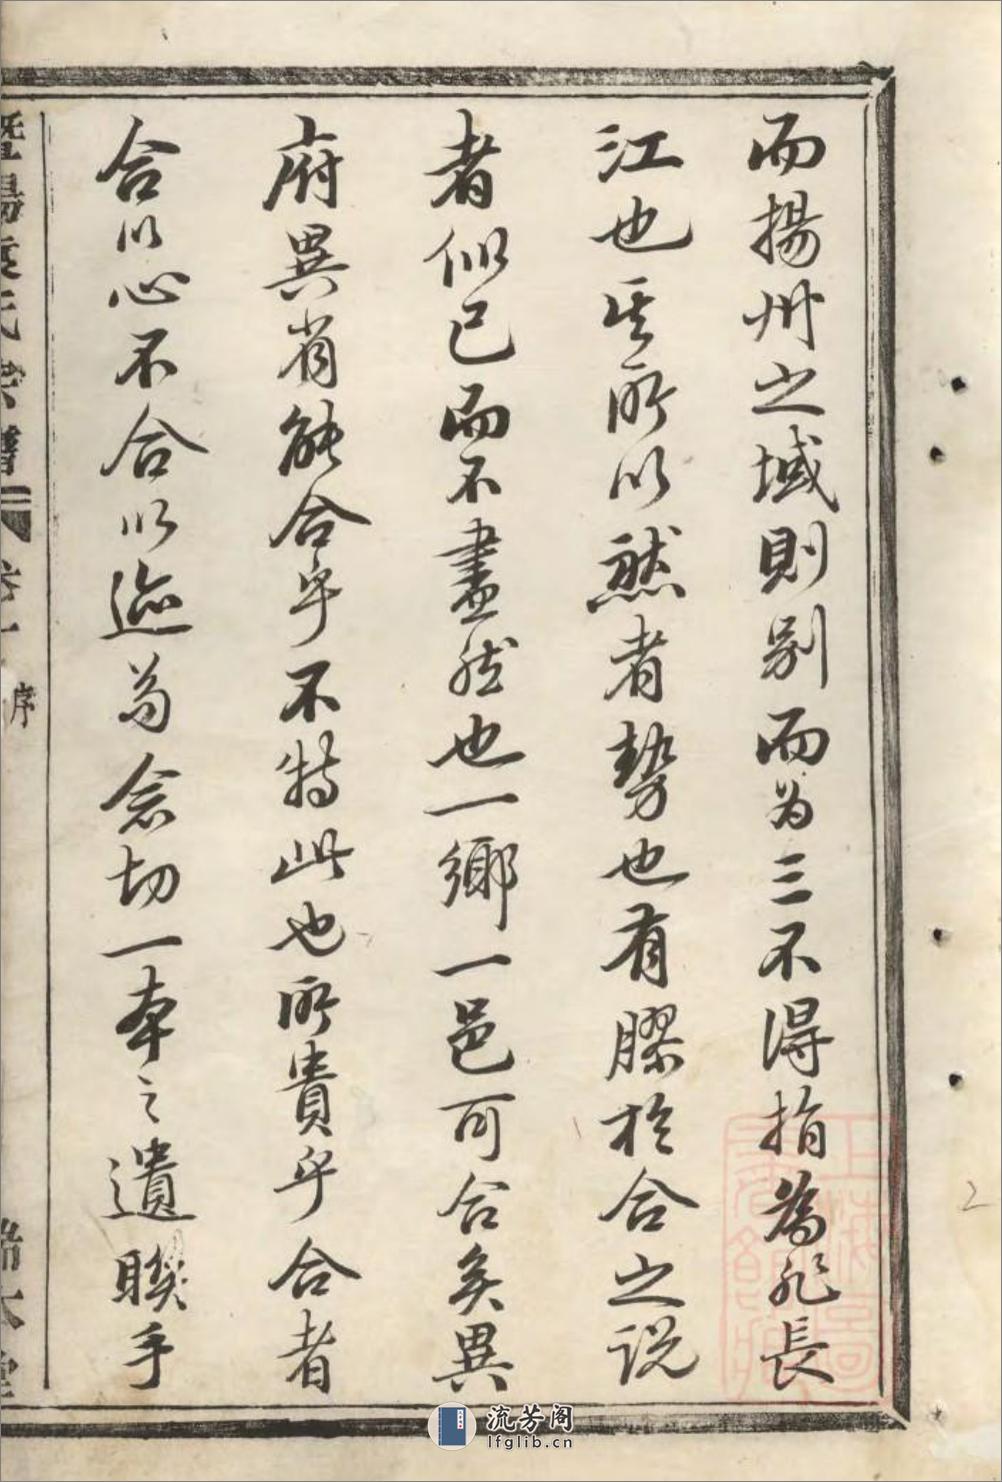 而揚州之域則別而为三不得指為非長
江也其所以然者勢也有膠於合之说
者似已而不盡然也一鄉一邑可合矣異
府異省能合乎不特此也所貴乎合者
合以心不合以迹苟念切一本之遺聯手
氏宗譜
序
2
流芳阁
lfglib.cn